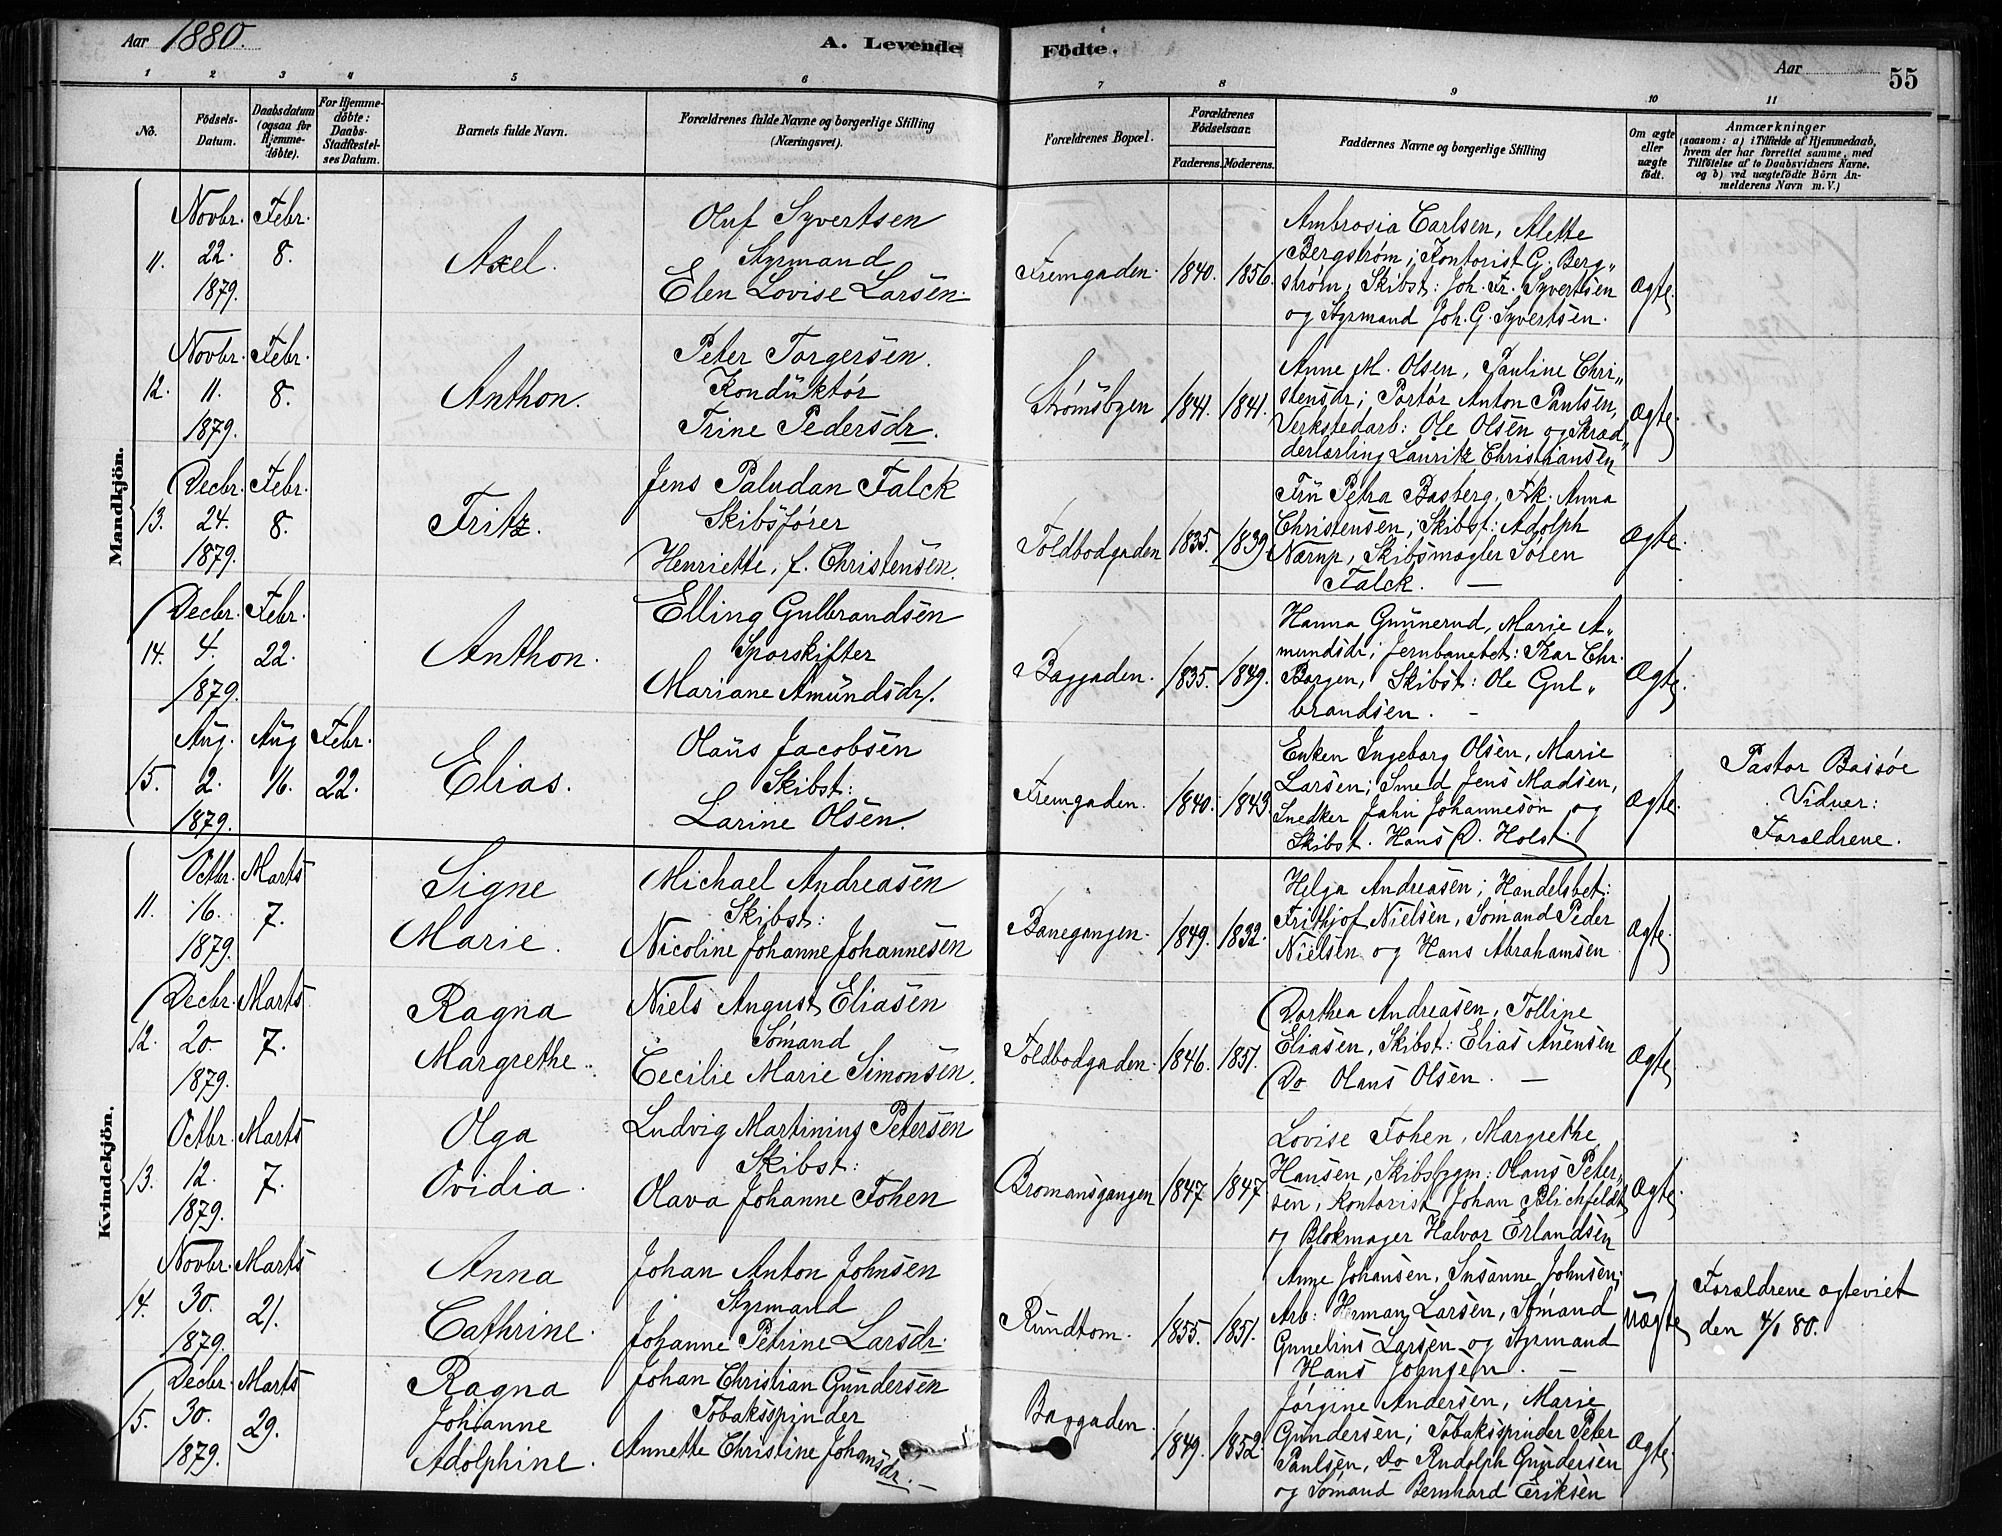 Aar 1880.
A. Levende Födte.
Aar
55
1 2 3 4 5 6 7 8 9 10 11
No.
Födsels-Datum.
Daabsdatum (ogsaa for Hjemme-döbte).
For Hjemme-döbte: Daabs-Stadfæstel-ses Datum.
Barnets fulde Navn.
Forældrenes fulde Navne og borgerlige Stilling (Næringsvei).
Forældrenes Bopæl.
Forældrenes Födselsaar.
Faderens. Moderens.
Faddernes Navne og borgerlige Stilling
Om ægte eller uægte födt.
Anmærkninger
(saasom: a) i Tilfælde af Hjemmedaab, hvem der har forrettet samme, med Tilföielse af to Daabsvidners Navne. og b) ved uægtefödte Börn Anmelderens Navn m. V.)
Mandkjön.
11. Novbr. 22. 1879. Febr. 8.
Axel.
Oluf Syvertsen
Styrmand
Elen Lovise Larsen.
Fremgaden. 1840. 1856.
Ambrosia Carlsen, Alette
Bergstrøm; Kontorist G. Berg„
strøm, Skibst: Joh. Fr. Syvertsen
og Styrmand Joh. G. Syvertsen.
Ægte.
12. Novbr. 11. 1879. Febr. 8.
Anthon.
Peter Torgersen.
Konduktør
Trine Pedersdr.
Strømsbyen 1841. 1841.
Anne M. Olsen, Pauline Chri„
stensdr; Portør Anton Paulsen,
Verkstedarb: Ole Olsen og Skræd„
derlærling Lauritz Christiansen
Ægte.
13. Decbr. 24. 1879. Febr. 8.
Fritz.
Jens Paludan Falck
Skibsfører
Henriette, f. Christensen.
Toldbodgaden 1835. 1839
Fru Petra Basberg, Frk. Anna
Christensen; Skibst: Adolph
Narup, Skibsmægler Sofen
Falck. —
Ægte.
14. Decbr. 4. 1879. Febr. 22.
Anthon.
Elling Gulbrandsen
Sporskifter
Mariane Amundsdr.
Baggaden. 1835. 1849.
Hanna Gunnerud, Marie A„
mundsdr; Jernbanebet: Ivar Chr.
Borgen, Skibst: Ole Gul„
brandsen. -
Ægte.
15. Aug. 2. 1879. Aug 16. Febr. 22.
Elias.
Olaus Jacobsen
Skibst:
Larine Olsen.
Fremgaden. 1840. 1843.
Enken Ingeborg Olsen, Marie
Larsen; Smed Jens Madsen,
Snedker John Johannesen og
Skibst. Hans D. Holst
Ægte.
Pastor Bassøe
Vidner:
Forældrene.
Kvindekjön.
11. Octbr. 16. 1879. Marts 7.
Signe
Marie.
Michael Andreasen
Skibst:
Nicoline Johanne Johannesen
Banegangen. 1849. 1832.
Helga Andreasen; Handelsbet:
Frithjof Nielsen, Sømand Peder
Nielsen og Hans Abrahamsen
Ægte.
12. Decbr. 20. 1879. Marts 7.
Ragna
Margrethe.
Niels August Eliasen
Sømand
Cecilie Marie Simonsen.
Toldbodgaden. 1846. 1851.
Dorthea Andreasen, Tolline
Eliasen, Skibst: Elias Anensen
Do Olaus Olsen. —
Ægte.
13. Octbr. 12. 1879. Marts 7.
Olga
Ovidia.
Ludvig Martinius Petersen
Skibst:
Olava Johanne Fohen
Bromansgangen 1847. 1847.
Lovise Fohen, Margrethe
Hansen, Skibsbygm: Olaus Peter„
sen, Kontorist Johan Blichfeldt
og Blokmager Halvor Erlandsen
Ægte.
14. Novbr. 30. 1879. Marts 21.
Anna
Cathrine.
Johan Anton Johnsen
Styrmand
Johanne Petrine Larsdr.
Rundtom. 1855. 1851.
Anne Johansen, Susanne Johnsen;
Arb: Herman Larsen, Sømand
Gunelius Larsen og Styrmand
Hans Johnsen. —
Uægte
Forældrene ægteviet
den 4/1 80.
15. Decbr. 30. 1879. Marts 29.
Ragna
Johanne
Adolphine.
Johan Christian Gundersen
Tobaksspinder
Annette Christine Johansdr. —
Baggaden. 1849. 1852.
Jørgine Andersen, Marie
Gundersen; Tobaksspinder Peter
Paulsen, Do Rudolph Gundersen
og Sømand Bernhard Eriksen
Ægte.